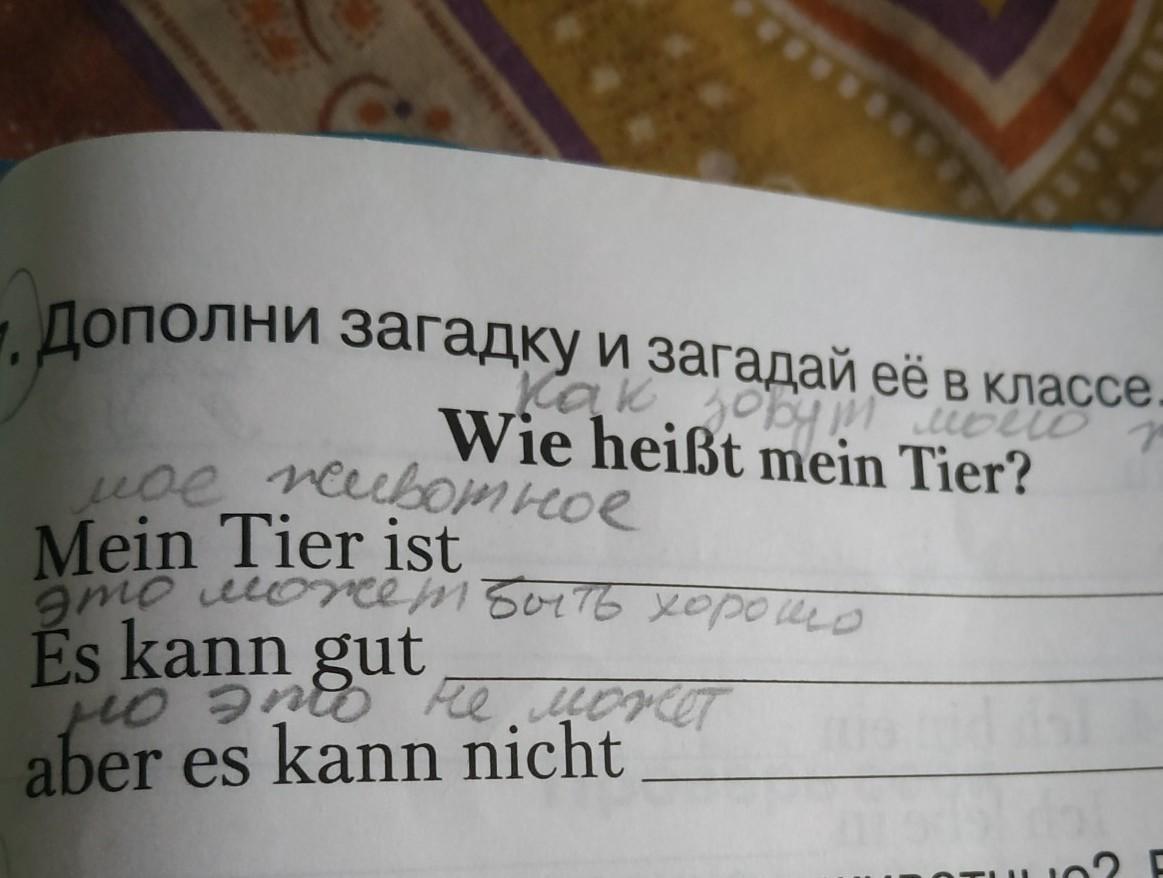 . Дополни загадку и загадай её в классе.
как зовут моио
Wie heißt mein Tier?
мое животное
Mein Tier ist
это может быть хорошо
Es kann gut
но это не может
aber es kann nicht